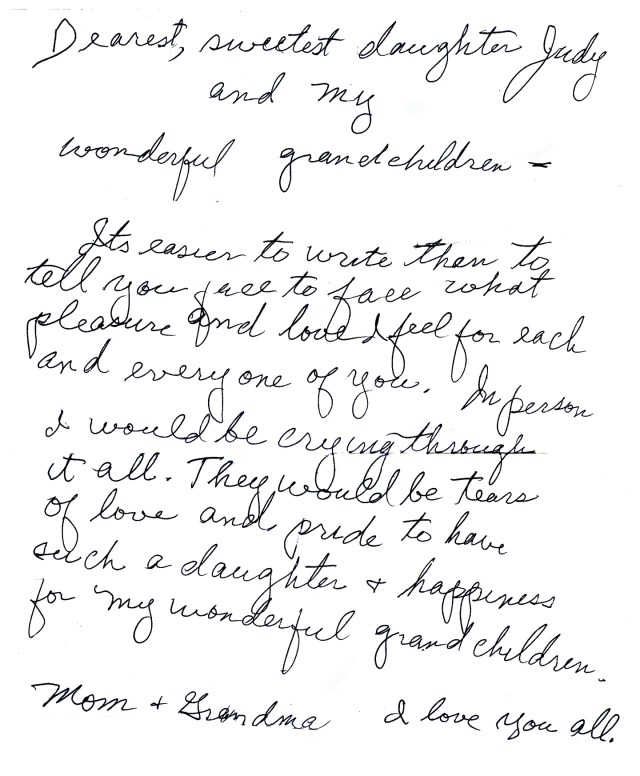 Dearest, sweetest daughter Judy
and my
wonderful grandchildren -
Its easier to write then to
tell you face to face what
pleasure and love I feel for each
and every one of you. In person
I would be crying through
it all. They would be tears
of love and pride to have
such a daughter + happiness
for my wonderful grandchildren.
Mom + Grandma I love you all.